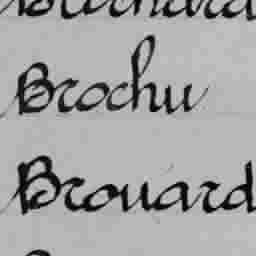 Brochu
Brouard